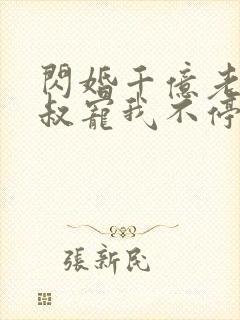 閃婚千億老
叔寵我不停
張新民